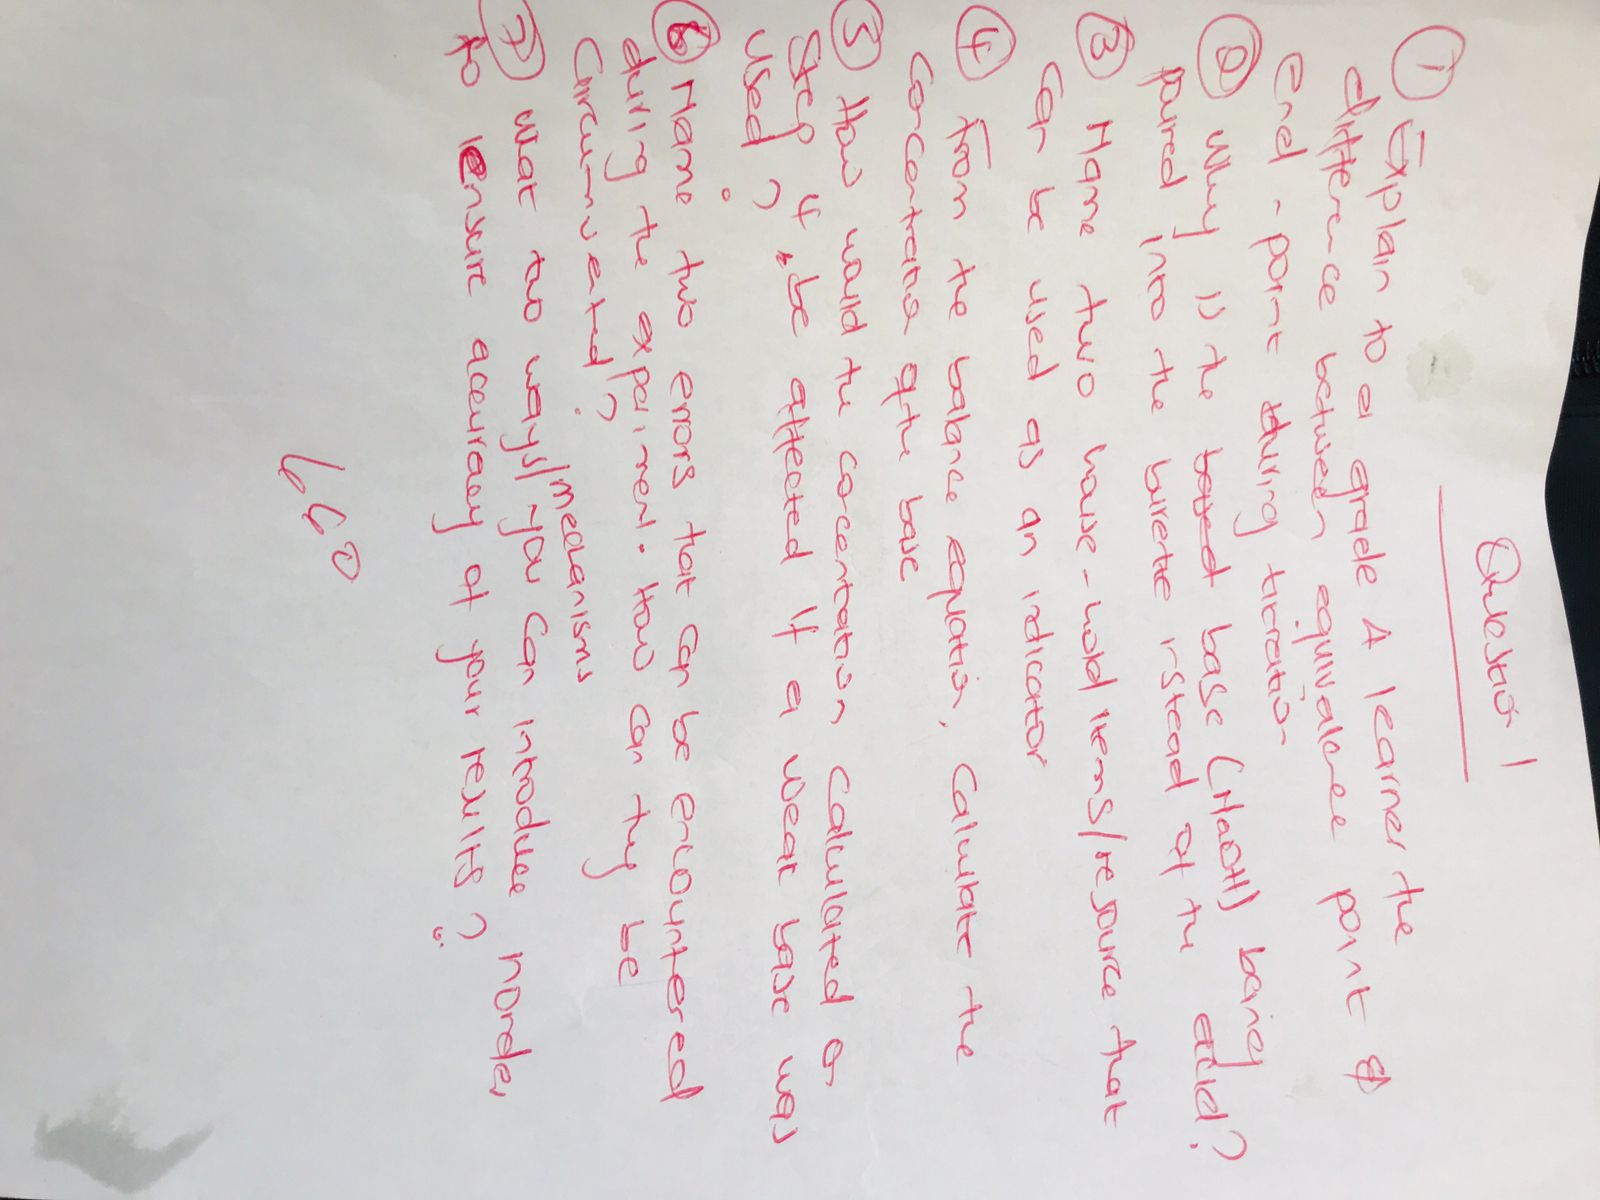 Question 1
① Explain to a grade 4 learner the
difference between equivalence point &
end-point during titration
② Why is the based base (NaOH) being
poured into the burette instead of the acid?
③ Name two house-hold items/resource that
can be used as an indicator
④ From the balance equation, calculate the
concentration of the base
⑤ How would the concentration calculated on
Step 4, be affected if a weak base was
used?
⑥ Name two errors that can be encountered
during the experiment. How can they be
Circumvented?
mechanisms
⑦ What two ways/you can introduce inorder
to ensure accuracy of your results?